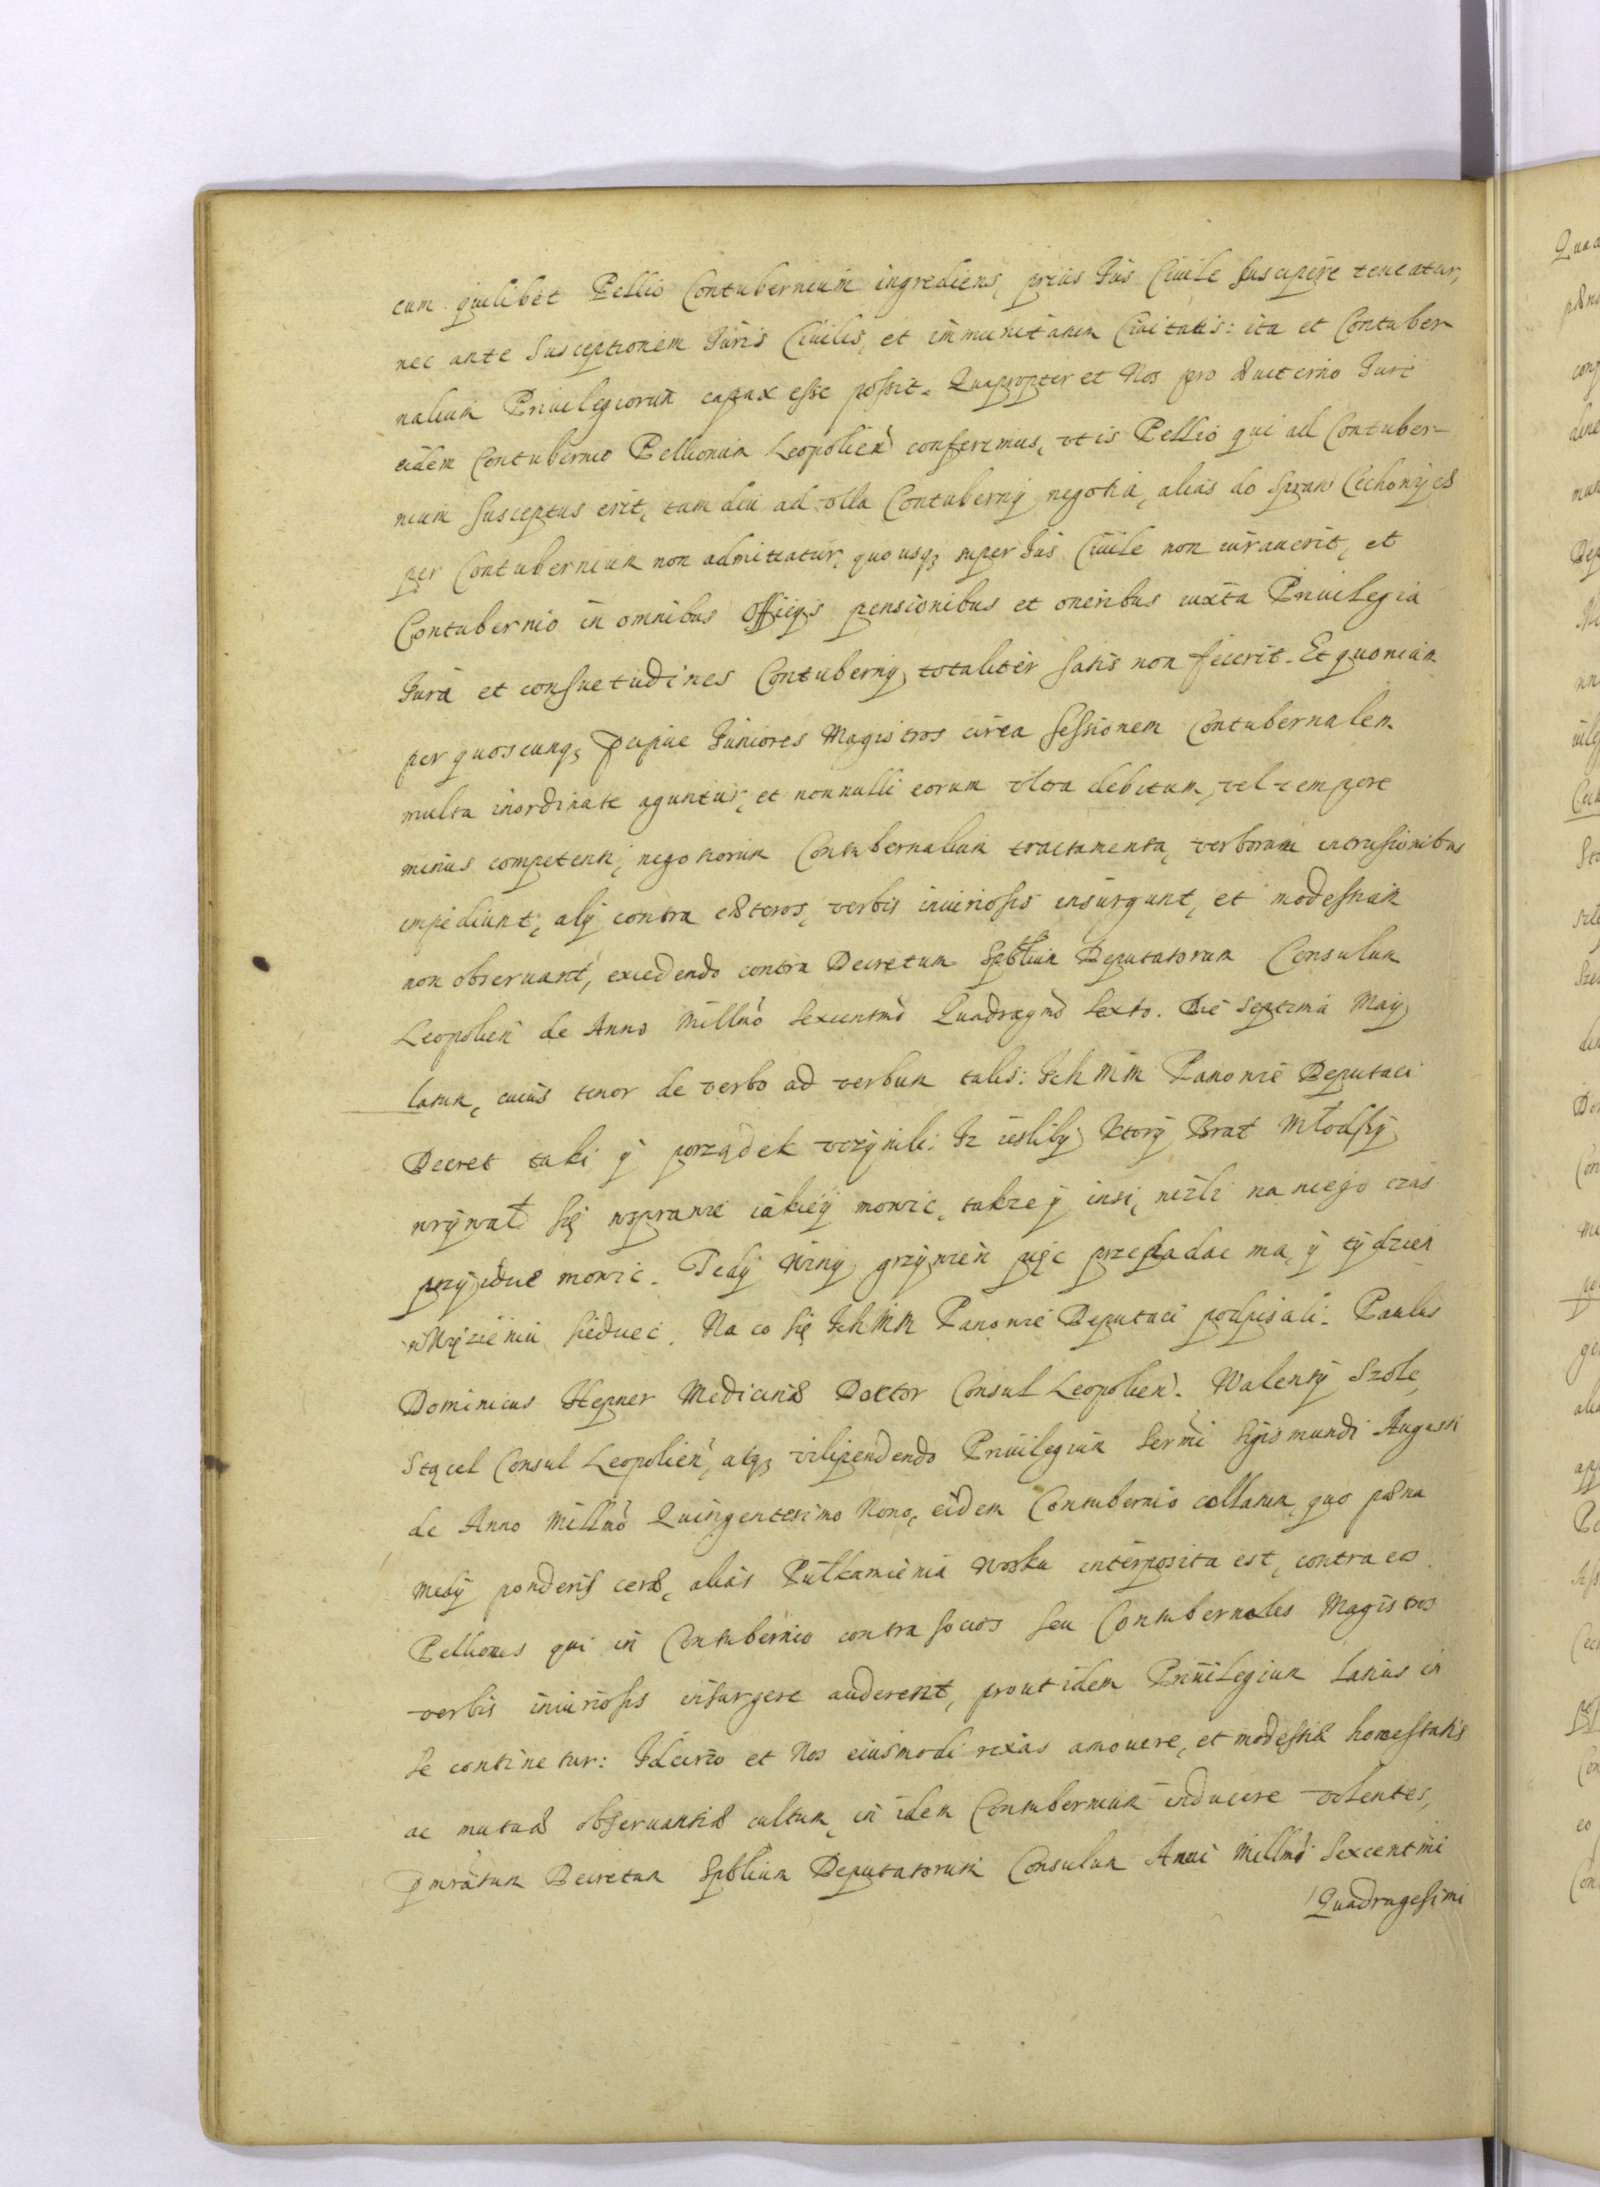 cum quilibet Pellio Contubernium ingrediens, prius Jus Ciuile suscipere teneatur,
nec ante susceptionem Juris Ciuilis, et immunitatum Ciuitatis: ita et Contuber
nalium Priuilegiorum capax esse possit. Quapropter et Nos pro æuiterno Jure
eidem Contubernio Pellionum Leopolien conferimus, vt is Pellio qui ad Contuber-
nium susceptus erit, tam diu ad vlla Contubernij negotia, alias do spraw Cechowÿch
per Contubernium non admittatur, quousq; super Jus Ciuile non iurauerit, et
Contubernio in omnibus Officijs pensionibus et oneribus iuxta Priuilegia
Jura et consuetudines Contubernij totaliter satis non fecerit. Et quoniam
per quoscunq; pcipue Juniores Magistros circa sessionem Contubernalem
multa inordinate aguntur, et nonnulli eorum vltra debitum, vel tempore
minus competenti, negotiorum Contubernalium tractamenta, verborum intrusionibus
impediunt, alij contra cæteros, verbis iniuriosis insurgunt, et modestiam
non obseruant, excedendo contra Decretum Spbliun Deputatorum Consulum
Leopolien de Anno Millmo Sexcentmo Quadragmo Sexto. Die Septima Maij
latum, cuius tenor de verbo ad verbum talis: Ich Mm Panowie Deputaci
Decret taki ÿ porządek vczÿnili: Iz iesliby ktory Brat Młodszÿ
wrÿwał się wsprawie iakieÿ mowic, takze ÿ insi, nizli na niego czas
przÿidzie mowic. Tedÿ Winÿ grzÿwien pięc przepadac ma, ÿ tÿdzien
wWięzieniu siedziec. Na co się Ich Mm Panowie Deputaci podpisali. Paulus
Dominicus Hepner Medicinæ Doctor Consul Leopolien. Walentÿ Szolc,
Stącel Consul Leopolien, atq; vilipendendo Priuilegium Sermi Sigismundi Augusti
de Anno Millmo Quingentesimo Nono, eidem Contubernio collatum, quo pæna
medÿ ponderis ceræ, alias Pułkamienia Wosku interposita est, contra eos
Pelliones qui in Contubernio contra socios seu Contubernales Magistros
verbis iniuriosis insurgere auderent, prout idem Priuilegium latius in
se continetur: Idcirco et Nos eiusmodi rixas amouere, et modestiæ honestatis
ac mutuæ obseruantiæ cultum, in idem Contubernium inducere volentes,
pmratum Decretum Spblium Deputatorum Consulum Anni Millmi Sexcentmi
Quadragesimi